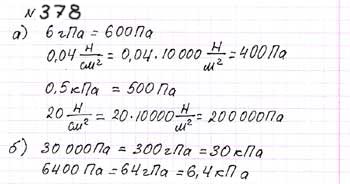 № 378
а) 6 гПа = 600 Па
0,04 Н/см² = 0,04·10 000 Н/м² = 400 Па
0,5 кПа = 500 Па
20 Н/см² = 20·10000 Н/м² = 200 000 Па
б) 30 000 Па = 300 гПа = 30 кПа
6400 Па = 64 гПа = 6,4 кПа